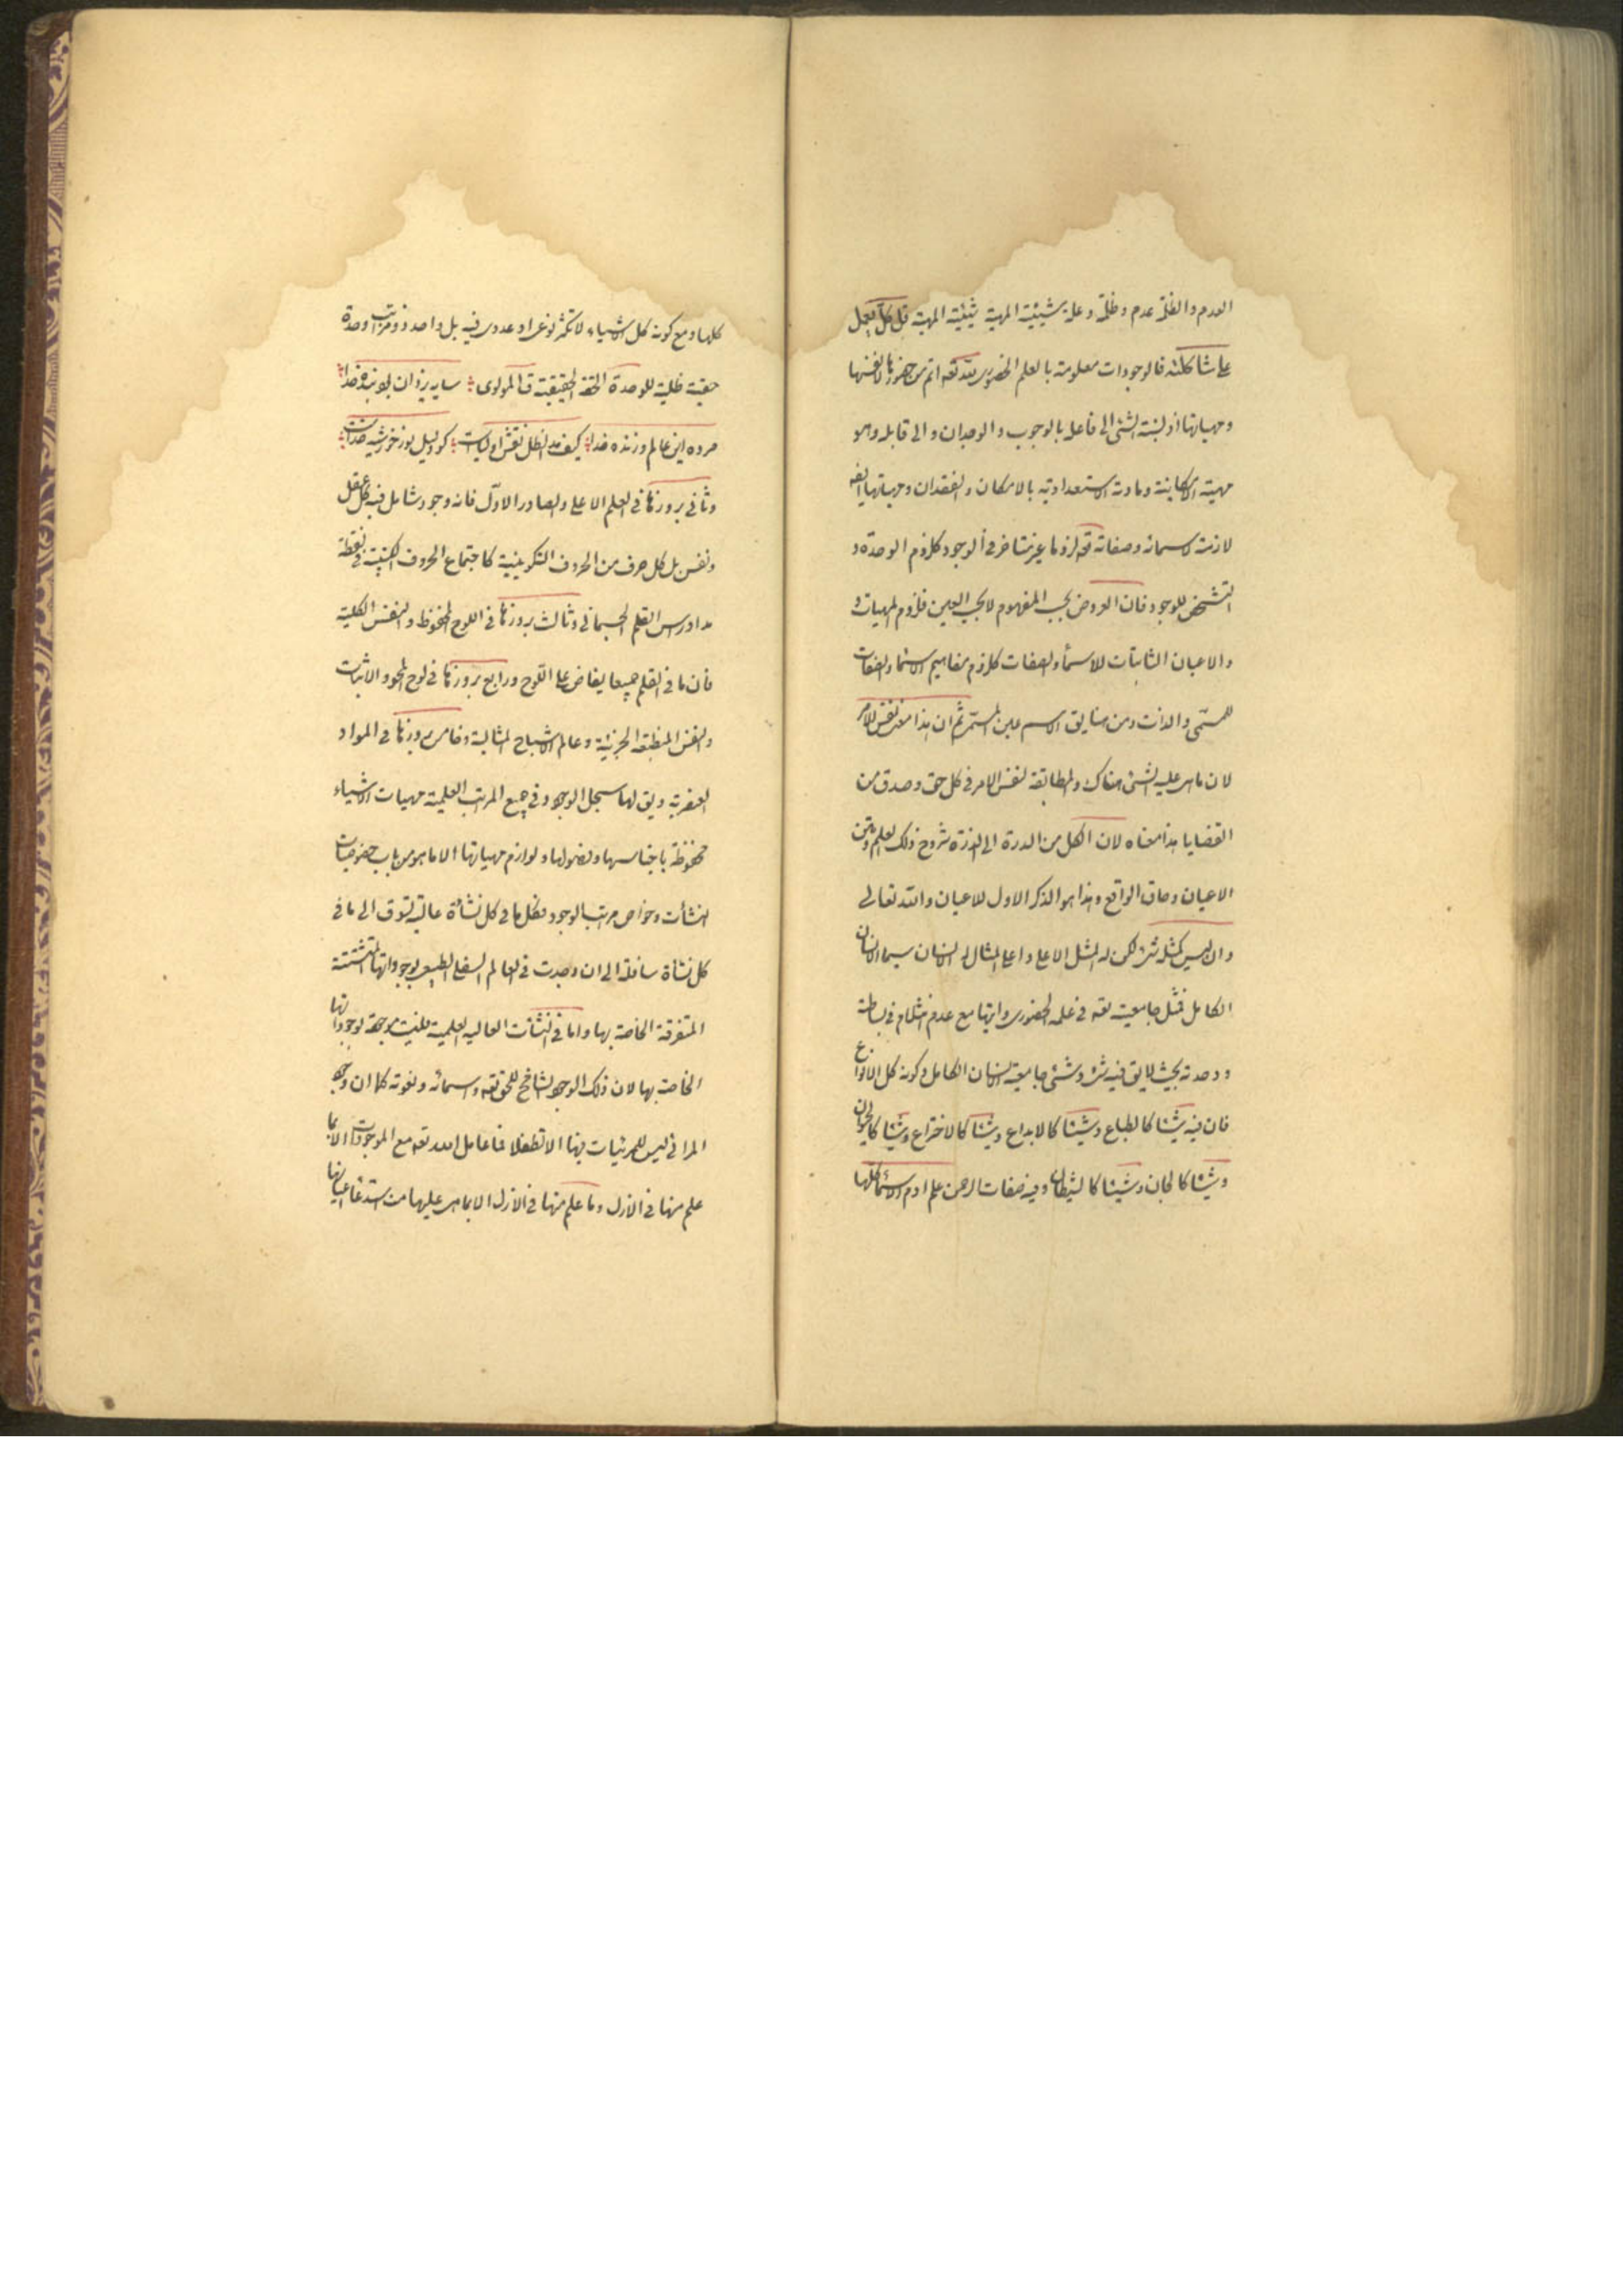 العدم والظلمة عدم وظلمة وعلة شيئية المهية شيئية المهية قل كل يعمل
على شاكلته فالوجودات معلومة بالعلم الحضوري لله تعه اتم من حضورها لانفسها
ومهياتها اذ نسبة الشئ الى فاعله بالوجوب والوجدان والى قابله وهو
مهيته الامكانية ومادته الاستعدادية بالامكان والفقدان ومهياتها ايضه
لازمة لاسمائه وصفاته تعه لزوما غير متاخر في الوجود كلزوم الوحدة و
التشخص للوجود فان العروض بحسب المفهوم لا بحسب العين فلزوم المهيات و
والاعيان الثابتات للاسماء والصفات كلزوم مفاهيم الاسماء والصفات
للمسمى والذات ومن هنا يق الاسم عين المسمى ثم ان هذا معنى نفس الامر
لان ما هى عليه الشئ هناك والمطابقة لنفس الامر في كل حق وصدق من
القضايا هذا معناه لان الكل من الدرة الى الذرة شروح ذلك العلم ومتن
الاعيان وحاق الواقع وهذا هو الذكر الاول للاعيان والله تعالى
وان ليس كمثله شئ لكن له المثل الاعلى واعلى المثال له الانسان سيما الانسان
الكامل فمثل جامعيته تعه في علمه الحضوري مع عدم انثلام في بساطته
ووحدته بحيث لا يق فيه شئ وشئ جامعية الانسان الكامل وكونه كل الانواع
فان فيه شيئا كالطباع وشيئا كالابداع وشيئا كالاختراع وشيئا كالحيوان
وشيئا كالجان وشيئا كالشيطان وفيه صفات الرحمن علم ادم الاسماء كلها
كلها ومع كونه كل الاشياء لا تكثر نوعى او عددى فيه بل واحد ذو مراتب وحدة
حقية ظلية للوحدة الحقة الحقيقية ق المولوى سايه يزدان بود بنده خدا
مرده اين عالم وزنده خدا كيف مد الظل نقش اولياست كو دليل نور خورشيد خداست
وثانى بروزها في القلم الاعلى والصادر الاول فانه وجود شامل فيه كل عقل
ونفس بل كل حرف من الحروف التكوينية كاجتماع الحروف الكتبية في نقطة
مداد راس القلم الجسمانى وثالث بروزها في اللوح المحفوظ والنفس الكلية
فان ما في القلم جميعا يفاض على اللوح ورابع بروزها في لوح المحو والاثبات
والنفس المنطبعة الجزئية وعالم الاشباح المثالية وخامس بروزها في المواد
العنصرية ويق لها سجل الوجود وفى جميع المراتب العلمية مهيات الاشياء
محفوظة باجناسها وفصولها ولوازم مهياتها الا ما هو من باب خصوصيات
النشأت وخواص مراتب الوجود فكل ما في كل نشأة عالية تسوق الى ما في
كل نشأة سافلة الى ان وجدت في العالم السفلى الطبيعى بوجوداتها المتشتتة
المتفرقة الخاصة بها واما في النشأت العالية العلمية فليست موجودة بوجوداتها
الخاصة بها لان ذلك الوجود الشامخ للحق تعه واسمائه ونعوته كما ان وجود
المرائى ليس للمرئيات فيها الا تطفلا فما عامل الله تعه مع الموجودات الا بما
علم منها في الازل وما علم منها في الازل الا بما هى عليها من استدعاء اعيانها